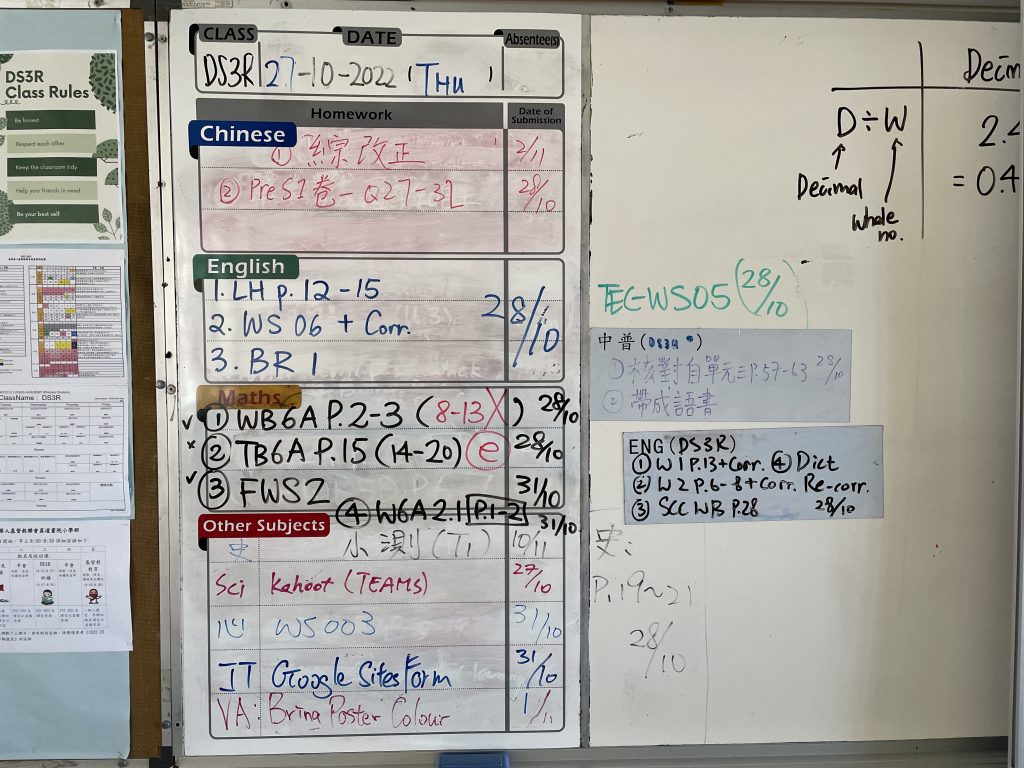 DS3R
Class Rules
Be honest
Respect each other
Keep the classroom tidy
Help your friends in need
Be your best self
ClassName: DS3R
CLASS DATE Absentee(s)
DS3R 27-10-2022 (THU)
Homework Date of Submission
Chinese
① 綜改正 2/11
② Pre S1卷-Q27-32 28/10
English
1. LH p. 12-15
2. WS 06 + Corr. 28/10
3. BR 1
Maths
✓ ① WB6A P.2-3 (8-13X) 28/10
② TB6A P.15 (14-20) ⓔ 28/10
✓ ③ FWS2 31/10
④ W6A 2.1 P.1-2 31/10
Other Subjects
史 小測(T1) 10/11
Sci Kahoot (TEAMS) 27/10
心 WS003 31/10
IT Google Sites Form 31/10
VA Bring Poster Colour 1/11
D÷W
Decimal
Whole
no.
2.
= 0.4
WS05 (28/10)
中普(DS3R)
① 核對自單元三P.57-63 28/10
② 帶成語書
ENG (DS3R)
① W1 P.13+Corr. ④ Dict
② W2 P.6-8+Corr. Re-corr.
③ SCC WB P.28 28/10
史:
P.19~21
28/10